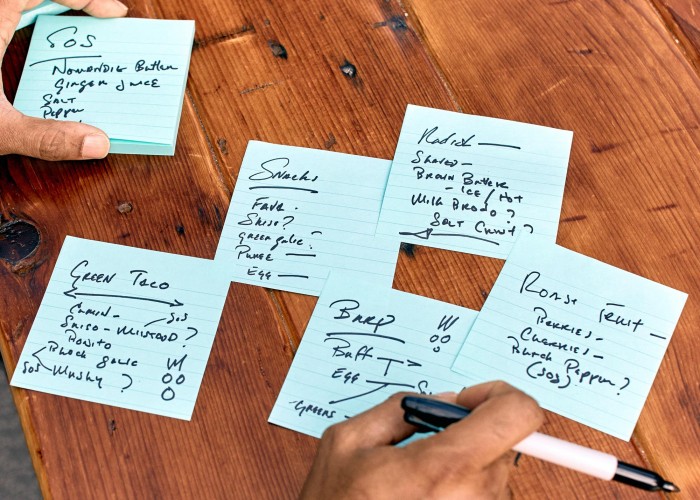 SOS
Ginger Juice
Salt
Pepper
Snacks
Fava
Shiso?
green garlic?
Puree
Egg
Radish
Shaved
Brown Butter
ICE / Hot
Milk Brodo?
Salt Crust?
Green Taco
SOS
Shiso - Mustood?
Bonito
Black garlic
SOS Mushy ?
Buff
Egg
Greens
Roast Fruit
Berries
Cherries
Black Pepper
(SOS) ?